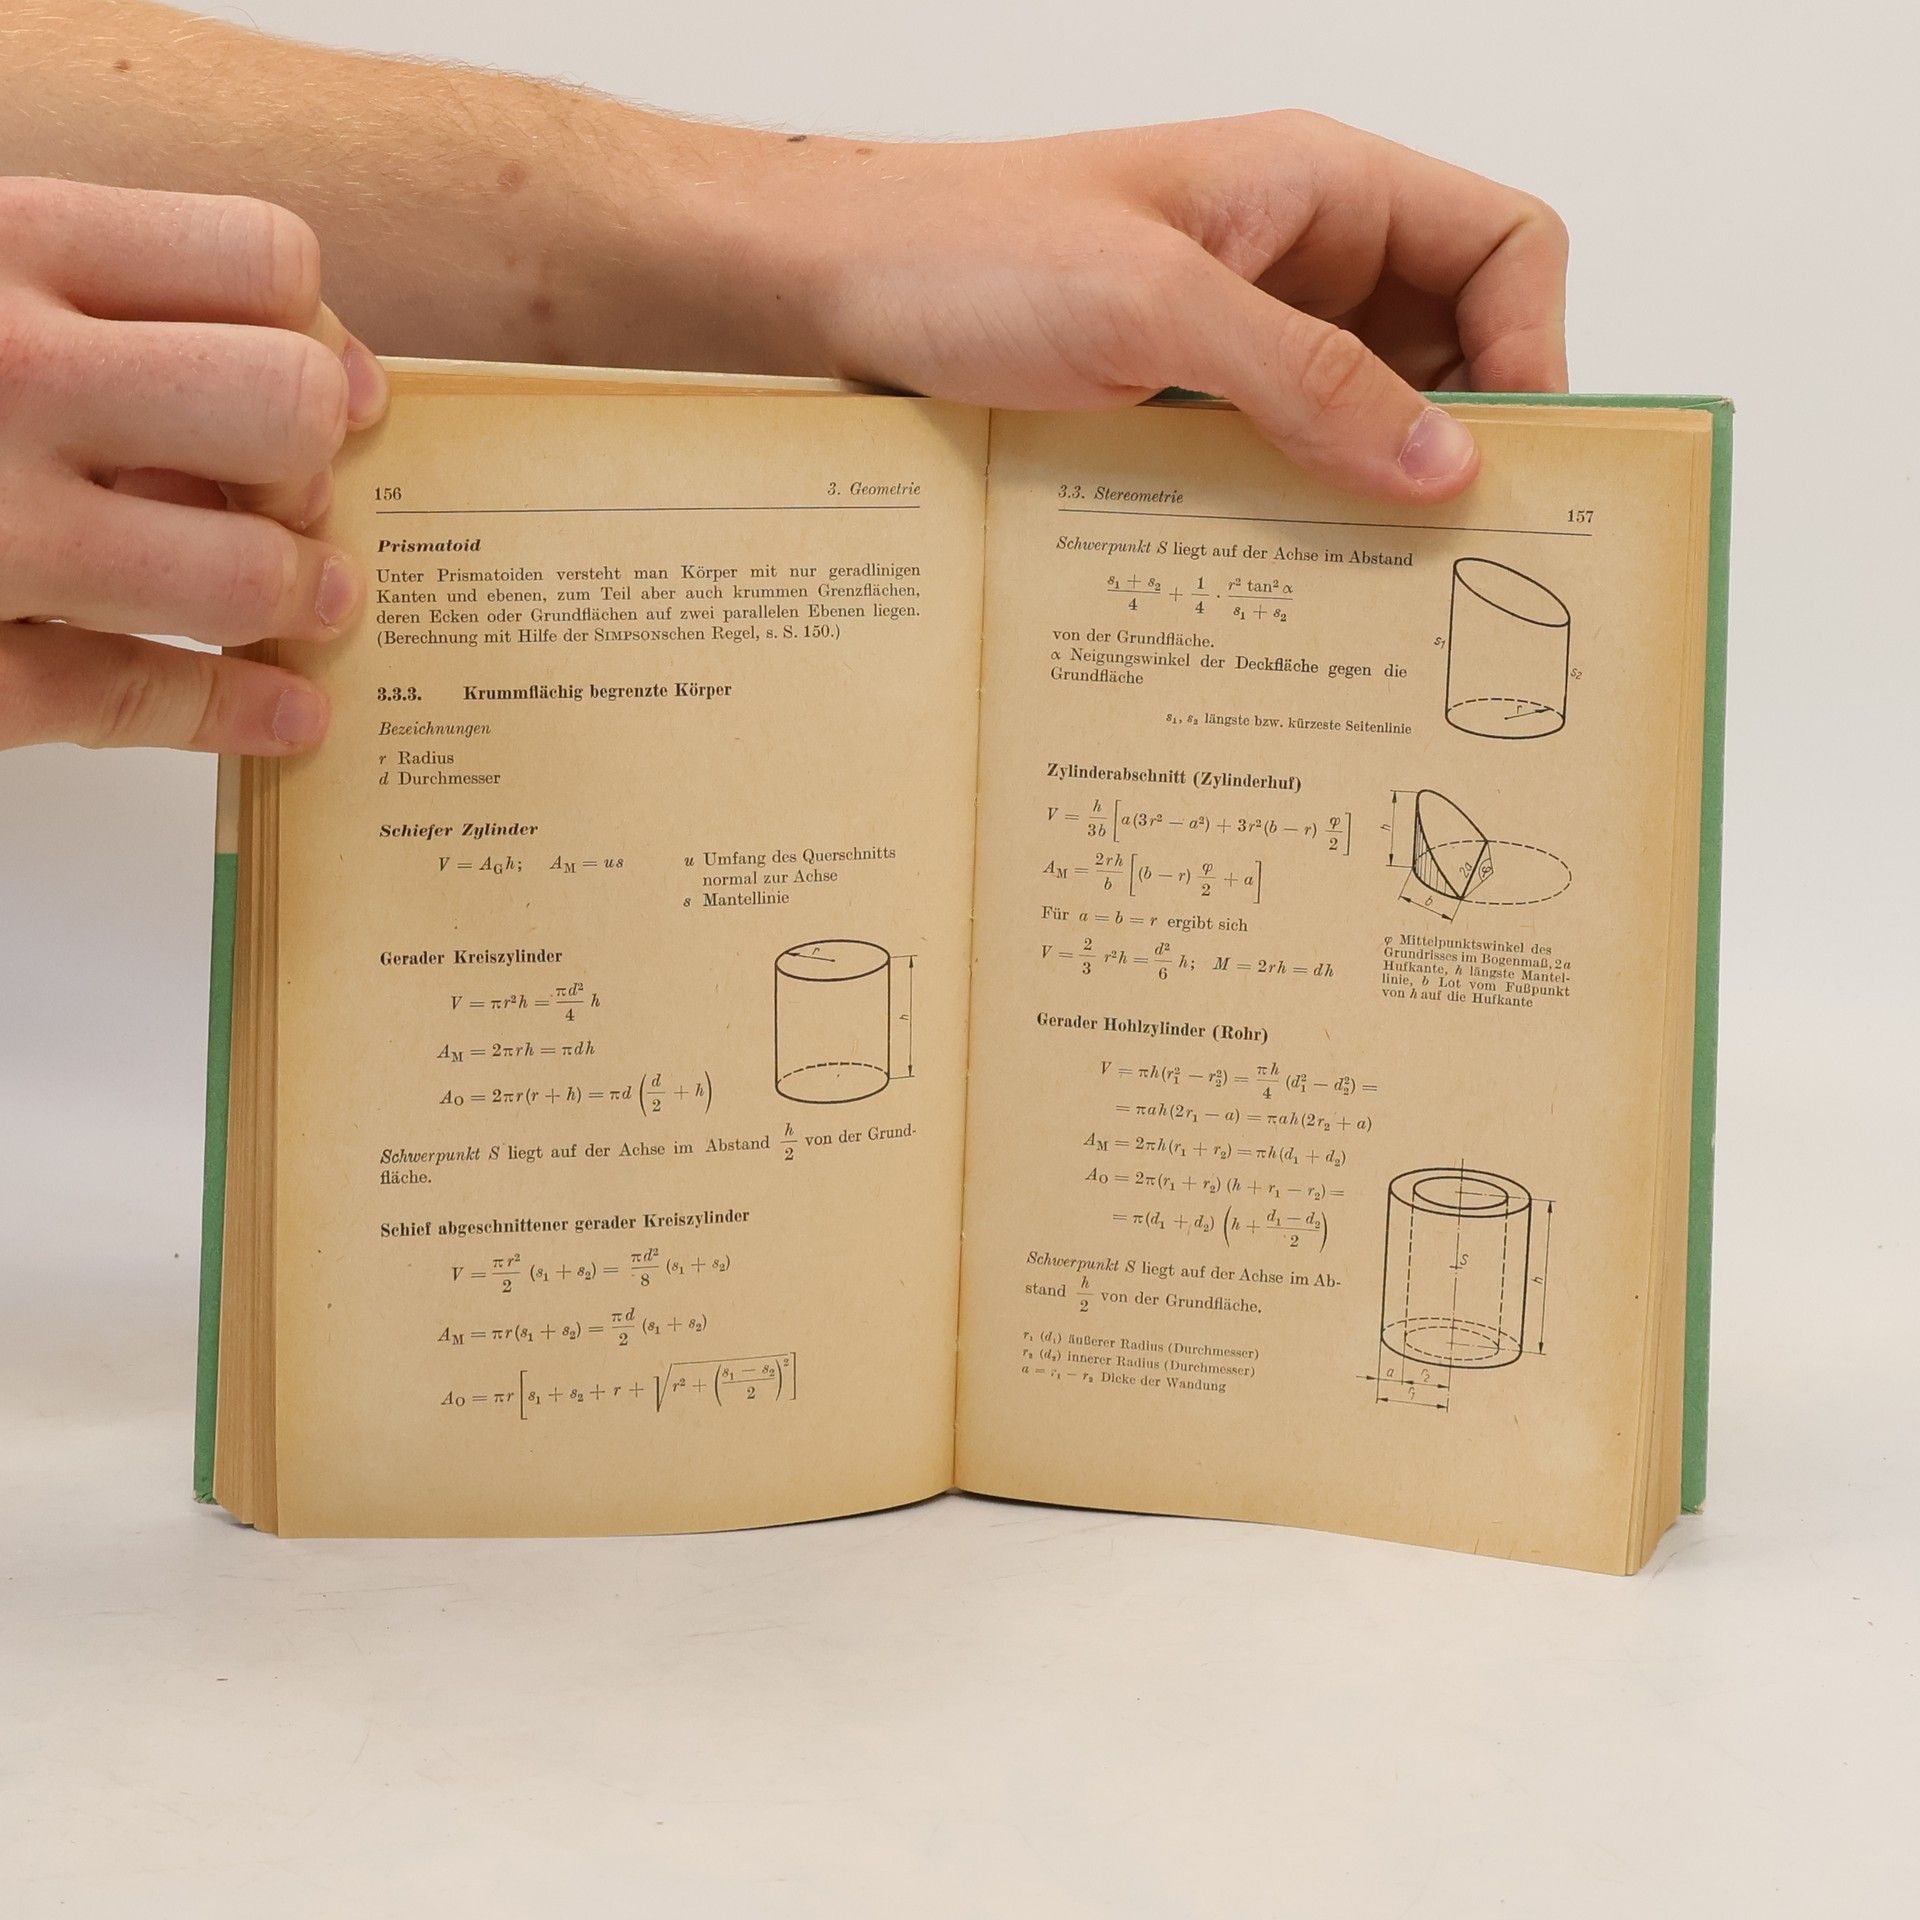 156
3. Geometrie
Prismatoid
Unter Prismatoiden versteht man Körper mit nur geradlinigen
Kanten und ebenen, zum Teil aber auch krummen Grenzflächen,
deren Ecken oder Grundflächen auf zwei parallelen Ebenen liegen.
(Berechnung mit Hilfe der SIMPSONschen Regel, s. S. 150.)
3.3.3. Krummflächig begrenzte Körper
Bezeichnungen
r Radius
d Durchmesser
Schiefer Zylinder
V = A_G h; A_M = us
u Umfang des Querschnitts
normal zur Achse
s Mantellinie
Gerader Kreiszylinder
V = πr²h = πd²/4 h
A_M = 2πrh = πdh
A_O = 2πr(r + h) = πd (d/2 + h)
r
h
Schwerpunkt S liegt auf der Achse im Abstand h/2 von der Grund-
fläche.
Schief abgeschnittener gerader Kreiszylinder
V = πr²/2 (s₁ + s₂) = πd²/8 (s₁ + s₂)
A_M = πr(s₁ + s₂) = πd/2 (s₁ + s₂)
A_O = πr [s₁ + s₂ + r + √(r² + ((s₁ − s₂)/2)²)]
3.3. Stereometrie
157
Schwerpunkt S liegt auf der Achse im Abstand
(s₁ + s₂)/4 + 1/4 · r² tan² α/(s₁ + s₂)
von der Grundfläche.
α Neigungswinkel der Deckfläche gegen die
Grundfläche
s₁, s₂ längste bzw. kürzeste Seitenlinie
s₁
s₂
r
Zylinderabschnitt (Zylinderhuf)
V = h/3b [a(3r² − a²) + 3r²(b − r) φ/2]
A_M = 2rh/b [(b − r) φ/2 + a]
Für a = b = r ergibt sich
V = 2/3 r²h = d²/6 h; M = 2rh = dh
h
2a
φ
b
φ Mittelpunktswinkel des
Grundrisses im Bogenmaß, 2a
Hufkante, h längste Mantel-
linie, b Lot vom Fußpunkt
von h auf die Hufkante
Gerader Hohlzylinder (Rohr)
V = πh(r₁² − r₂²) = πh/4 (d₁² − d₂²) =
= πah(2r₁ − a) = πah(2r₂ + a)
A_M = 2πh(r₁ + r₂) = πh(d₁ + d₂)
A_O = 2π(r₁ + r₂) (h + r₁ − r₂) =
= π(d₁ + d₂) (h + (d₁ − d₂)/2)
Schwerpunkt S liegt auf der Achse im Ab-
stand h/2 von der Grundfläche.
r₁ (d₁) äußerer Radius (Durchmesser)
r₂ (d₂) innerer Radius (Durchmesser)
a = r₁ − r₂ Dicke der Wandung
S
h
a
r₂
r₁